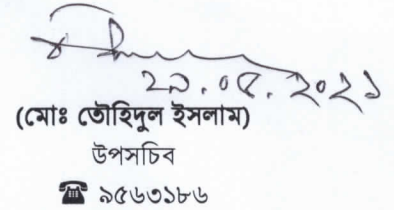 ২৯.০৫.২০২১
(মোঃ তৌহিদুল ইসলাম)
উপসচিব
☎ ৯৫৬৩১৮৬